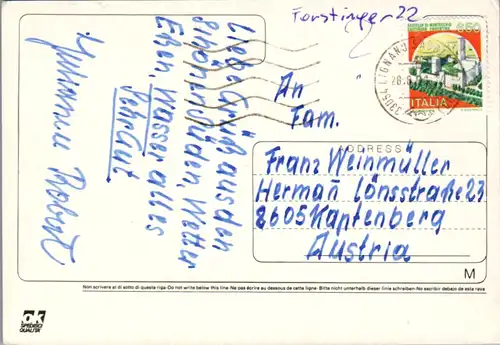 Forstinger 22
650
ITALIA
33054 LIGNANO
28.8.
An
Fam.
ADDRESS
Franz Weinmüller
Herman Lönsstraße 23
8605 Kapfenberg
Austria
M
Liebe Grüße aus den
schönen Süden, Wetter
Essen, Wasser alles
Sehr Gut
Robert
Non scrivere al di sotto di questa riga - Do not write below this line - Ne pas écrire au dessous de cette ligne - Bitte nicht unterhalb dieser linie schreiben - No escribir debajo de esta raya
ok
SPEDISCI
QUALITÀ